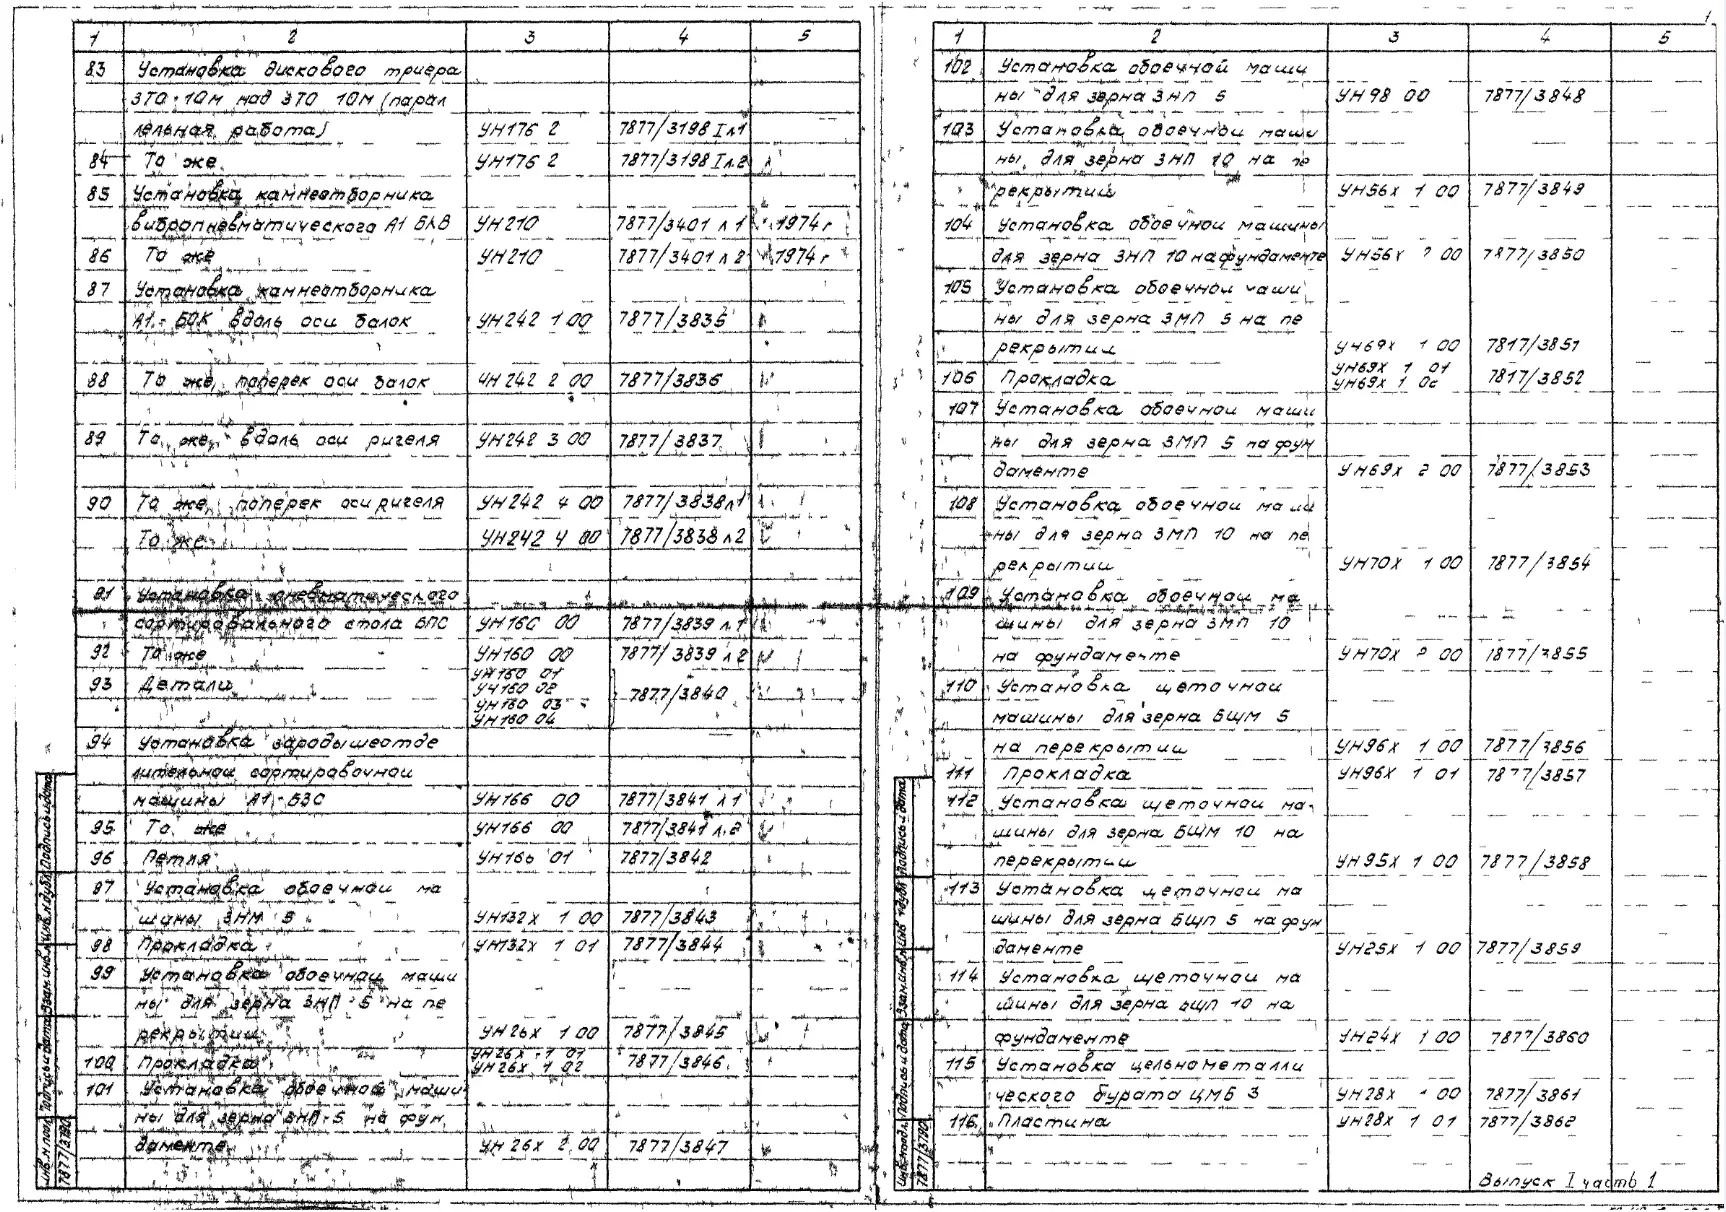 1 2 3 4 5
83 Установка дискового триера
ЗТО-10М над ЗТО 10М (парал
лельная работа) УН176 2 7877/3198 I л1
84 То же. УН176 2 7877/3198 I л.2
85 Установка камнеотборника
вибропневматического А1 БКВ УН210 7877/3401 л 1 1974 г
86 То же УН210 7877/3401 л 2 1974 г
87 Установка камнеотборника
А1-БОК вдоль оси балок УН242 1 00 7877/3835
88 То же, поперек оси балок УН242 2 00 7877/3836
89 То же, вдоль оси ригеля УН242 3 00 7877/3837
90 То же, поперек оси ригеля УН242 4 00 7877/3838 л1
То же УН242 4 00 7877/3838 л2
91 Установка пневматического
сортировального стола БПС УН160 00 7877/3839 л.1
92 То же УН160 00 7877/3839 л 2
93 Детали УН160 01
УН160 02 7877/3840
УН160 03
УН160 04
94 Установка зародышеотде
лительной сортировочной
машины А1-БЗС УН166 00 7877/3841 л 1
95 То же УН166 00 7877/3841 л.2
96 Петля УН166 01 7877/3842
97 Установка обоечной ма
шины ЗНМ 5 УН132Х 1 00 7877/3843
98 Прокладка УН132Х 1 01 7877/3844
99 Установка обоечной маши
ны для зерна ЗНП-5 на пе
рекрытии УН26Х 1 00 7877/3845
100 Прокладка УН26Х 1 01
УН26Х 1 02 7877/3846
101 Установка обоечной маши
ны для зерна ЗНП-5 на фун
даменте УН26Х 2.00 7877/3847
Инв.N подл. Подпись и дата Взам.инв.N Инв.N дубл. Подпись и дата
7877/3780
1
1 2 3 4 5
102 Установка обоечной маши
ны для зерна ЗНП 5 УН98 00 7877/3848
103 Установка обоечной маши
ны для зерна ЗНП 10 на пе
рекрытии УН56Х 1 00 7877/3849
104 Установка обоечной машины
для зерна ЗНП 10 на фундаменте УН56Х 2 00 7877/3850
105 Установка обоечной маши
ны для зерна ЗМП 5 на пе
рекрытии УН69Х 1 00 7817/3851
106 Прокладка УН69Х 1 01
УН69Х 1 02 7817/3852
107 Установка обоечной маши
ны для зерна ЗМП 5 на фун
даменте УН69Х 2 00 7877/3853
108 Установка обоечной маши
ны для зерна ЗМП 10 на пе
рекрытии УН70Х 1 00 7877/3854
109 Установка обоечной ма
шины для зерна ЗМП 10
на фундаменте УН70Х 2 00 7877/3855
110 Установка щеточной
машины для зерна БЩМ 5
на перекрытии УН96Х 1 00 7877/3856
111 Прокладка УН96Х 1 01 7877/3857
112 Установка щеточной ма-
шины для зерна БЩМ 10 на
перекрытии УН95Х 1 00 7877/3858
113 Установка щеточной ма
шины для зерна БЩП 5 на фун
даменте УН25Х 1 00 7877/3859
114 Установка щеточной ма
шины для зерна БЩП 10 на
фундаменте УН24Х 1 00 7877/3860
115 Установка цельнометалли
ческого бурата ЦМБ 3 УН28Х 1 00 7877/3861
116 Пластина УН28Х 1 01 7877/3862
Выпуск I часть 1
Инв.N подл. Подпись и дата Взам.инв.N Инв.N дубл. Подпись и дата
7877/3780